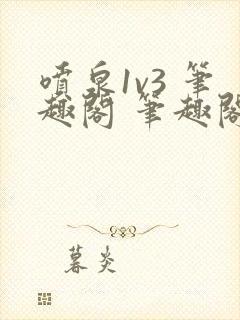 噴泉1v3 筆
趣閣 筆趣閣
暮炎